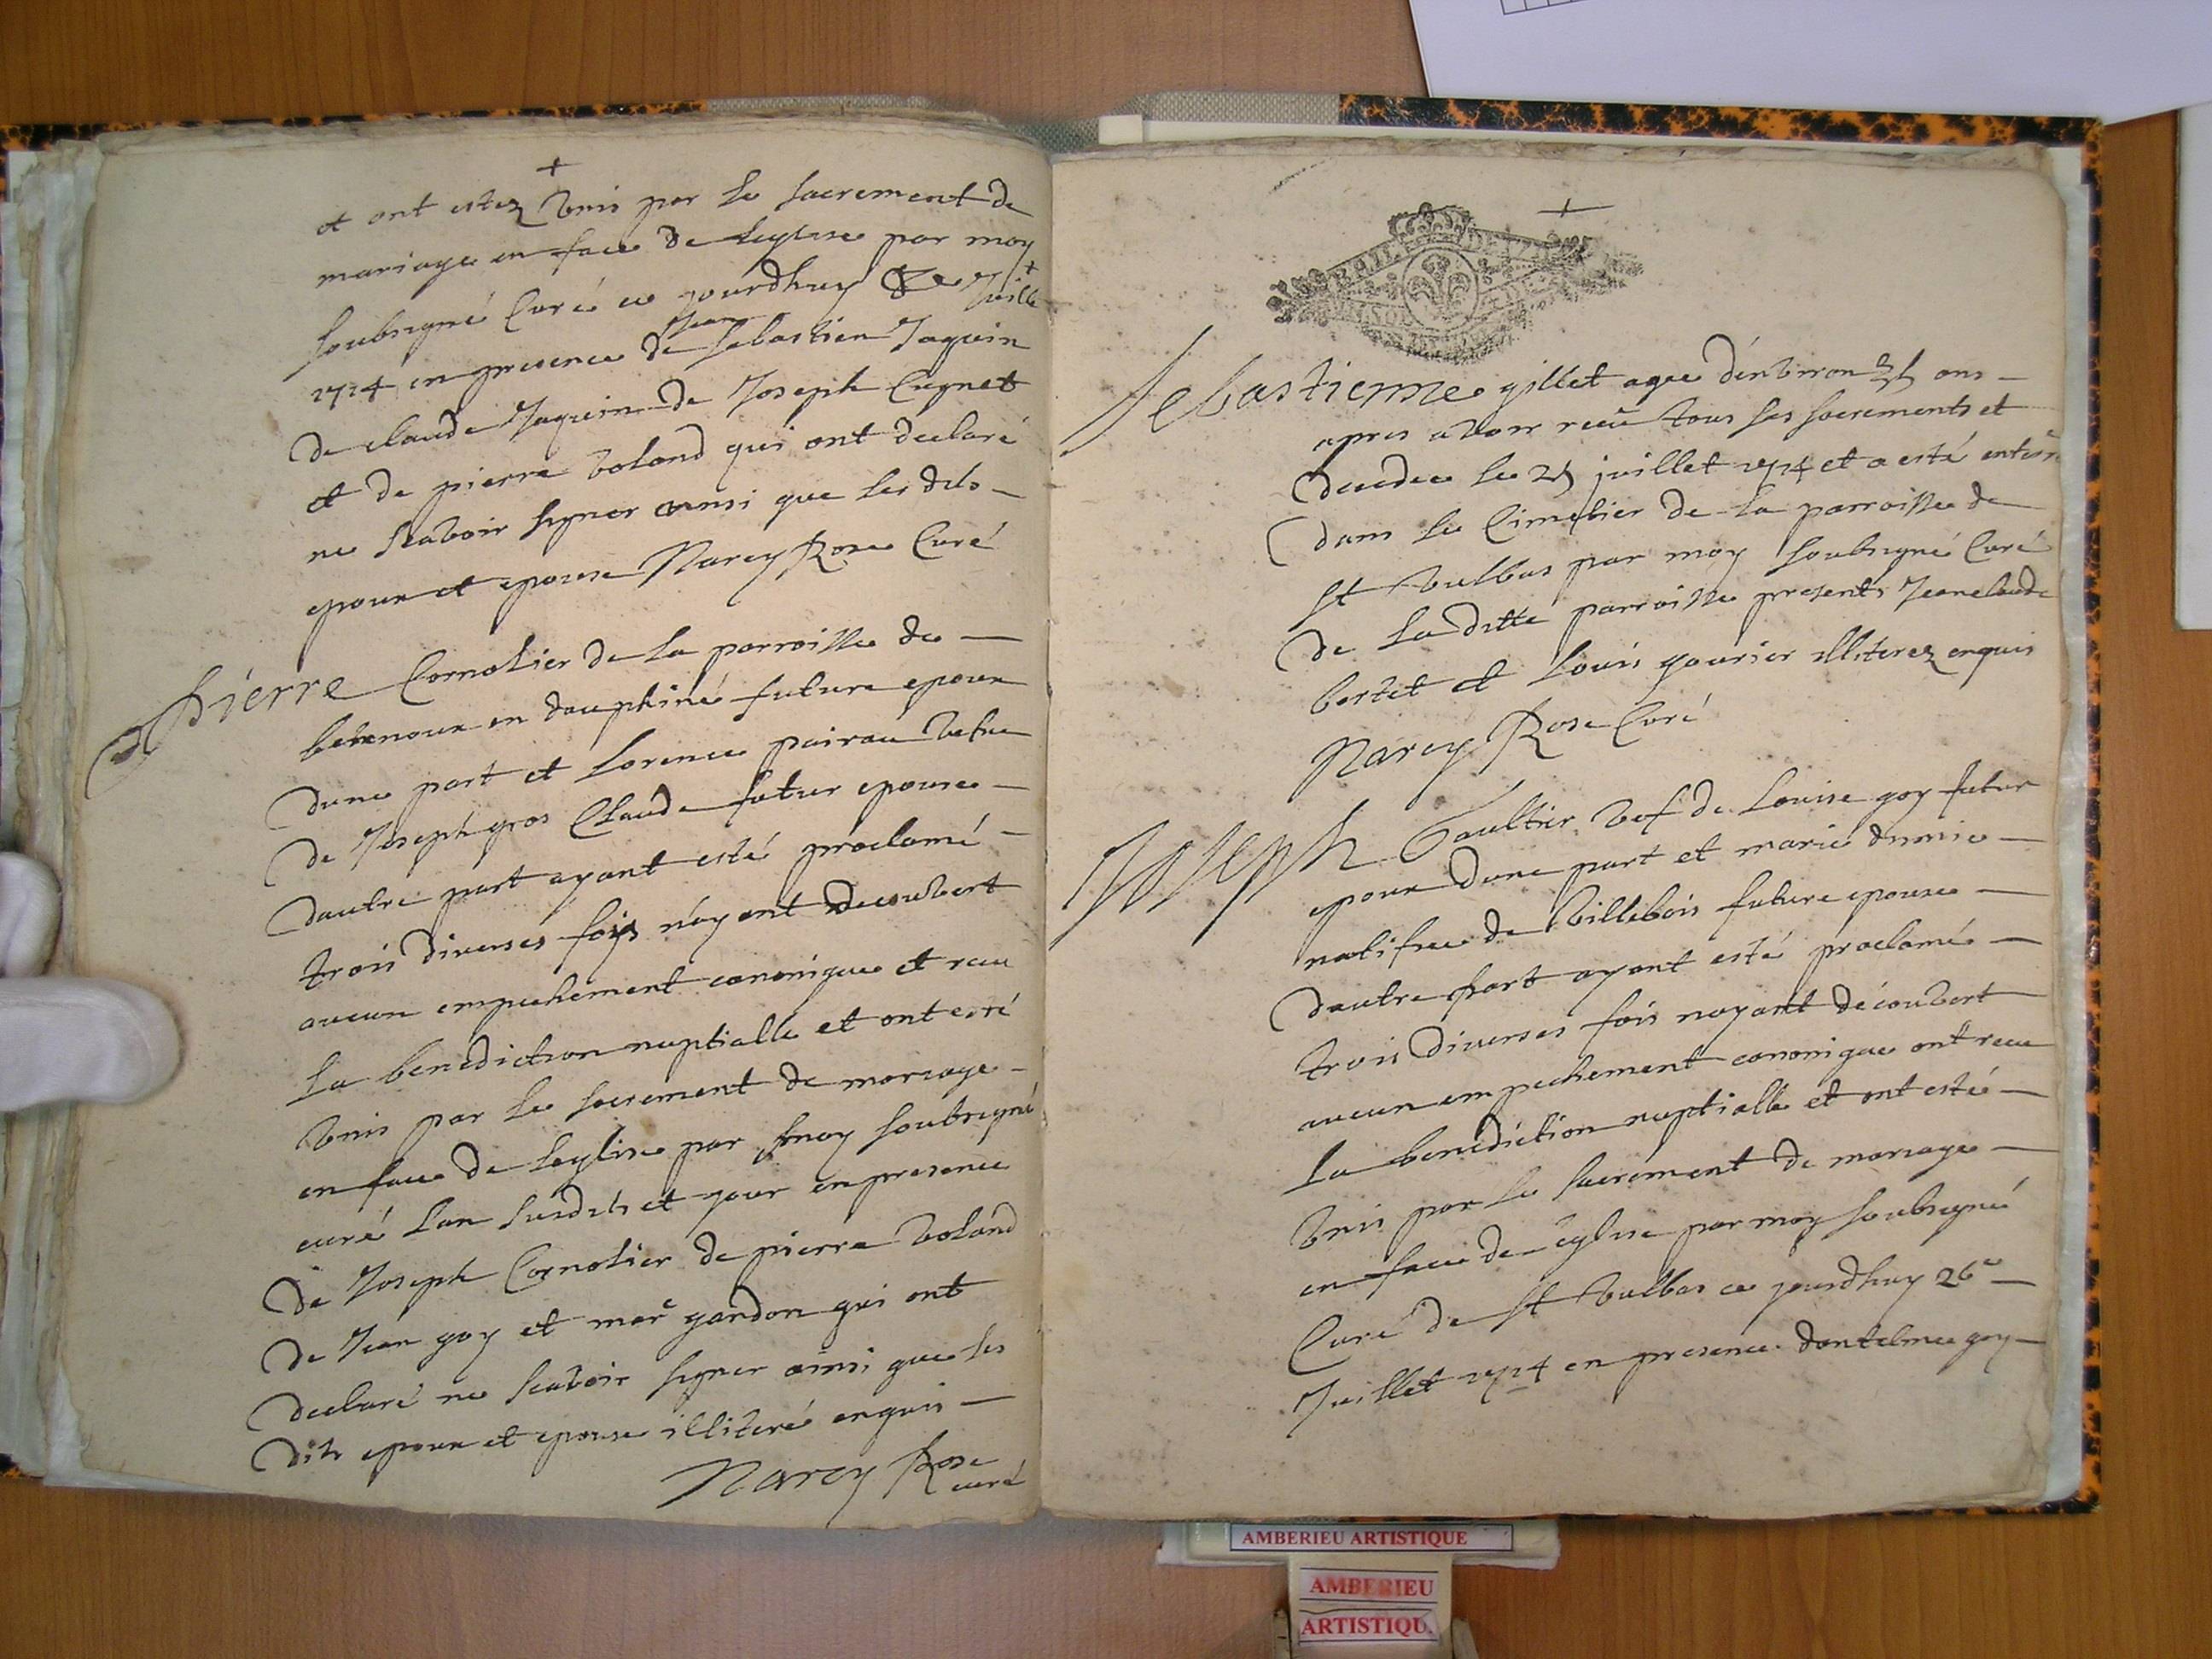 et ont estez vnis par le sacrement de
mariage en face de leglise par moy
soubsigné Curé ce jourdhuy Juille
1714 en presence de Jean Sebastien Jaquin
de claude Jaquin de Joseph Cugnet
et de pierre Voland qui ont declaré
ne scavoir signer ainsi que les dits
epoux et epouse Narcy Rose Curé
Pierre Cornotier de la parroisse de
en dauphiné future epoux
dune part et Lorence pairau vefve
de Joseph gros Claude futur epouse
dautre part ayant esté proclamé
trois diverses fois n'ayant decouvert
aucun empechement canonique et receu
La benediction nuptialle et ont esté
vnis par le sacrement de mariage
en face de Leglise par moy soubsigné
curé Lan susdits et jour en presence
de Joseph Cornotier de pierre Voland
de Jean goy et mar gandon qui ont
declaré ne scavoir signer ainsi que les
dits epoux et epouse illiteré enquis
Narcy Rose
curé
Sebastienne gillet agee dénviron ans
apres avoir receu tous ses sacréments et
decedee le 25 juillet 1714 et a esté enterr
dans le Cimetier de la parroisse de
St Vulbas par moy soubsigné Curé
de La ditte parroisse presents Jeanclaude
bertet et Louis gourier illiterez enquis
Narcy Rose Curé
Joseph Gaultier vef de Louise goy futur
epoux dune part et marie
natifve de Villebois future epouse
dautre part ayant esté proclamé
trois diverses fois nayant découvert
aucun empechement canonique ont receu
La benediction nuptialle et ont esté
vnis par le sacrement de mariage
en face de eglise par moy soubsigné
Curé de St Vulbas ce jourdhuy 26e
Juillet 1714 en presence dantelme goy
AMBERIEU ARTISTIQUE
AMBERIEU
ARTISTIQU